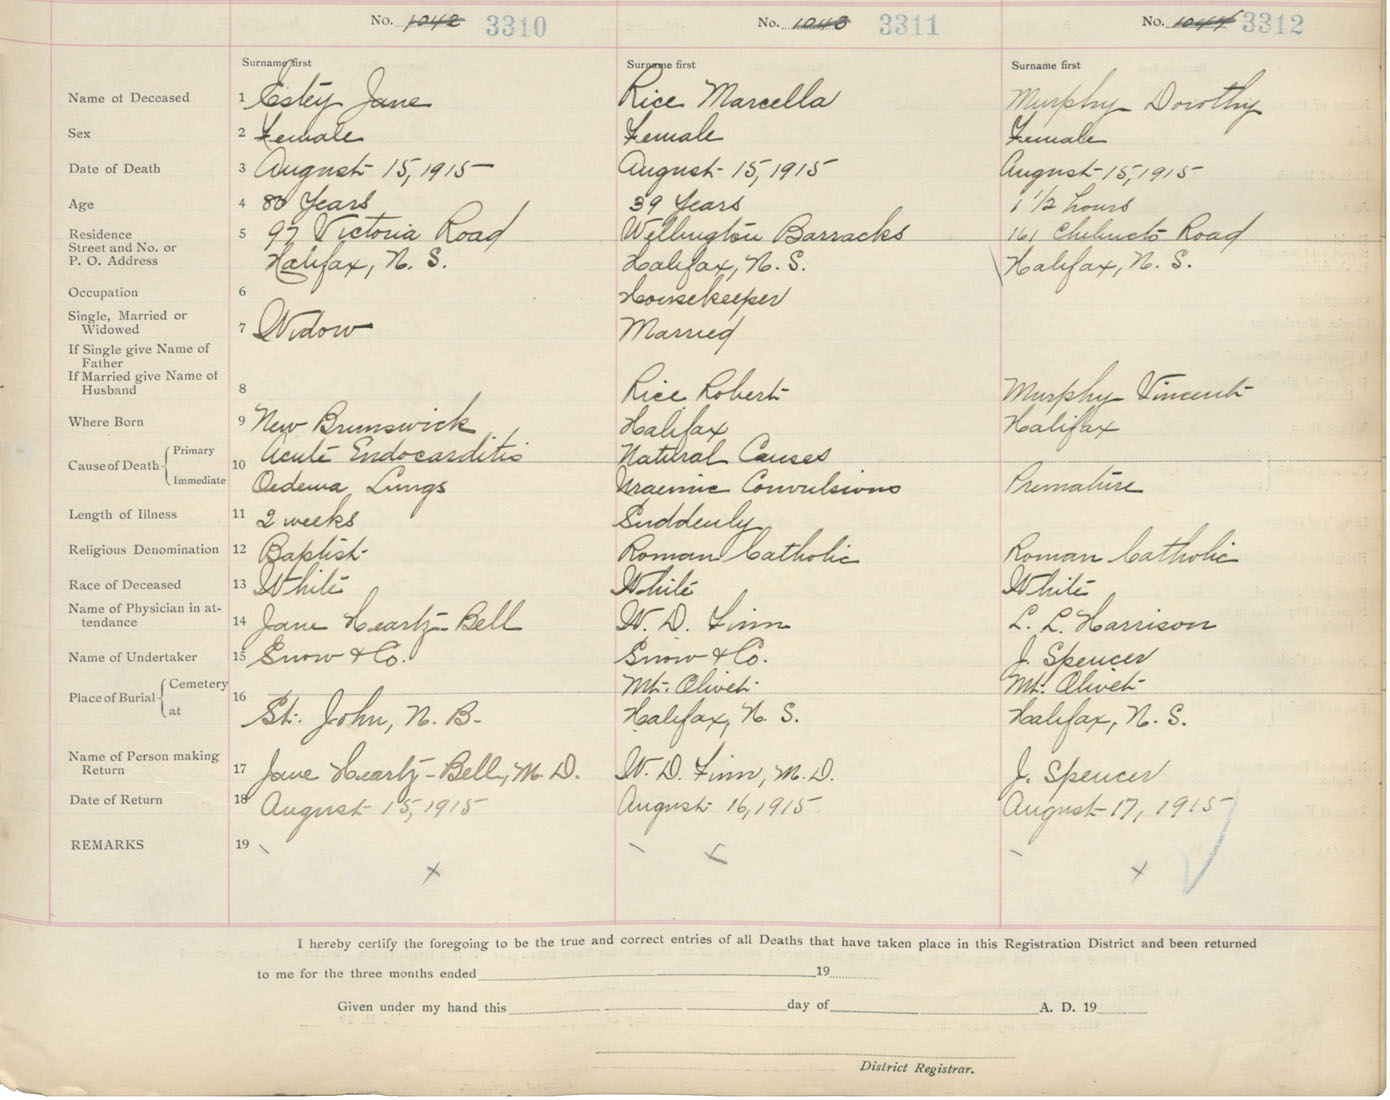 No. 1042 3310 No. 1043 3311 No. 1044 3312
Surname first Surname first Surname first
Name of Deceased 1 Estey Jane Rice Marcella Murphy Dorothy
Sex 2 Female Female Female
Date of Death 3 August 15, 1915 August 15, 1915 August 15, 1915
Age 4 80 Years 39 Years 1 1/2 hours
Residence 5 97 Victoria Road Wellington Barracks 161 Chebucto Road
Street and No. or
P. O. Address Halifax, N. S. Halifax, N. S. Halifax, N. S.
Occupation 6 Housekeeper
Single, Married or
Widowed 7 Widow Married
If Single give Name of
Father
If Married give Name of
Husband 8 Rice Robert Murphy Vincent
Where Born 9 New Brunswick Halifax Halifax
Cause of Death Primary 10 Acute Endocarditis Natural Causes
Immediate Oedema Lungs Uraemic Convulsions Premature
Length of Illness 11 2 weeks Suddenly
Religious Denomination 12 Baptist Roman Catholic Roman Catholic
Race of Deceased 13 White White White
Name of Physician in at-
tendance 14 Jane Heartz-Bell W. D. Finn L. L. Harrison
Name of Undertaker 15 Snow & Co. Snow & Co. J. Spencer
Place of Burial Cemetery 16 Mt. Olivet Mt. Olivet
at St. John, N. B. Halifax, N. S. Halifax, N. S.
Name of Person making
Return 17 Jane Heartz-Bell, M. D. W. D. Finn, M. D. J. Spencer
Date of Return 18 August 15, 1915 August 16, 1915 August 17, 1915
REMARKS 19
x x x
I hereby certify the foregoing to be the true and correct entries of all Deaths that have taken place in this Registration District and been returned
to me for the three months ended 19
Given under my hand this day of A. D. 19
District Registrar.